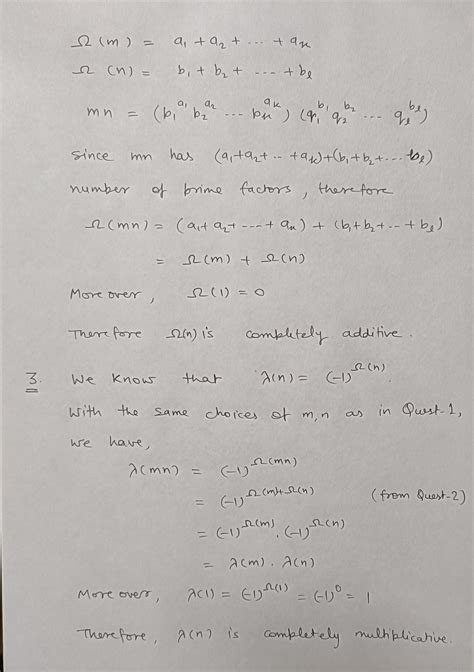 Ω(m) = a₁ + a₂ + ... + aₖ
Ω(n) = b₁ + b₂ + ---- + bₗ
mn = (p₁^a₁ p₂^a₂ ... pₖ^aₖ) (q₁^b₁ q₂^b₂ ... qₗ^bₗ)
Since mn has (a₁+a₂+..+aₖ)+(b₁+b₂+...bₗ)
number of prime factors, therefore
Ω(mn) = (a₁+a₂+---+aₖ) + (b₁+b₂+--+bₗ)
= Ω(m) + Ω(n)
Moreover, Ω(1) = 0
Therefore Ω(n) is completely additive.
3. We know that λ(n) = (-1)^Ω(n)
With the same choices of m,n as in Quest-1,
we have,
λ(mn) = (-1)^Ω(mn)
= (-1)^Ω(m)+Ω(n) (from Quest-2)
= (-1)^Ω(m) . (-1)^Ω(n)
= λ(m) . λ(n)
Moreover, λ(1) = (-1)^Ω(1) = (-1)^0 = 1
Therefore, λ(n) is completely multiplicative.